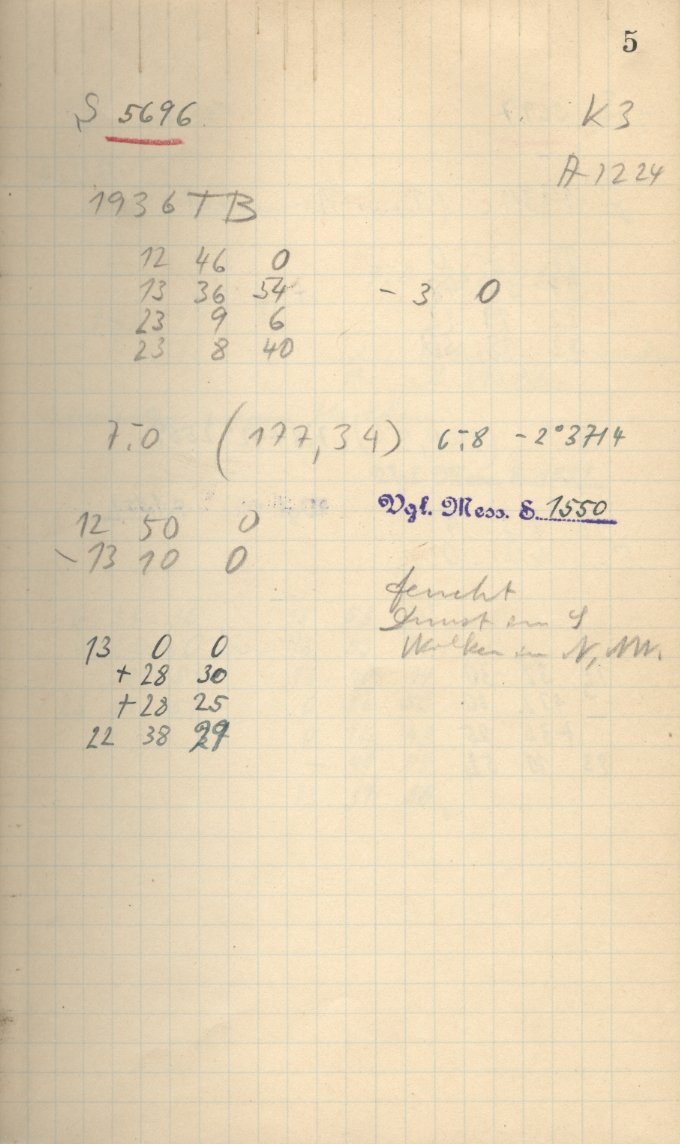 5
S 5696
K 3
A 1224
1936 TB
12 46 0
13 36 54 - 3 0
23 9 6
23 8 40
7.-0 (177,34) 6.-8 -2°3714
Vgl. Mess. S. 1550
12 50 0
- 13 10 0
feucht
Dunst im S
Wolken im N, NW.
13 0 0
+ 28 30
+ 28 25
22 38